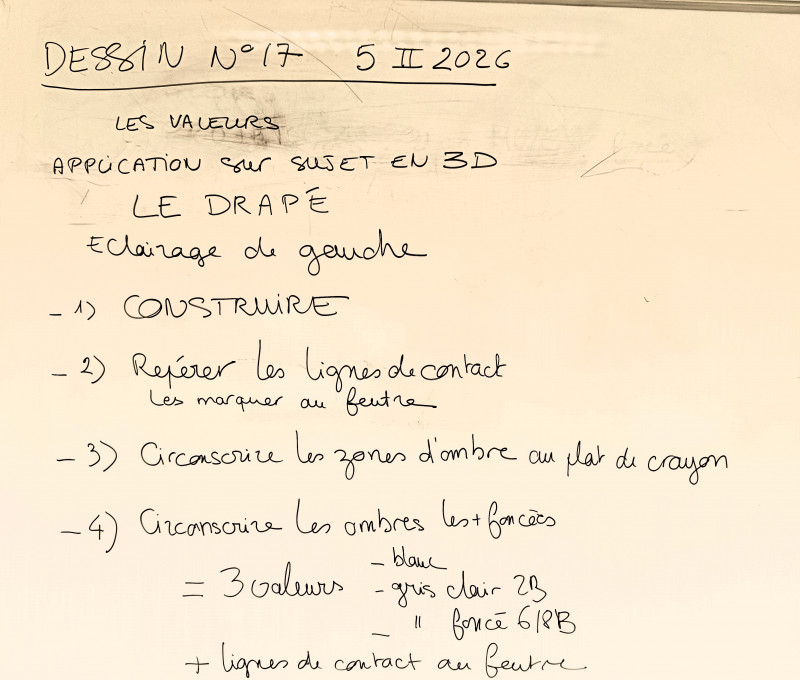 DESSIN N°17 5 II 2026
LES VALEURS
APPLICATION sur SUJET EN 3D
LE DRAPÉ
Eclairage de gauche
- 1) CONSTRUIRE
- 2) Repérer les lignes de contact
les marquer au feutre
- 3) Circonscrire les zones d'ombre au plat de crayon
- 4) Circonscrire les ombres les + foncées
= 3 valeurs - blanc
- gris clair 2B
- " foncé 6/8B
+ lignes de contact au feutre